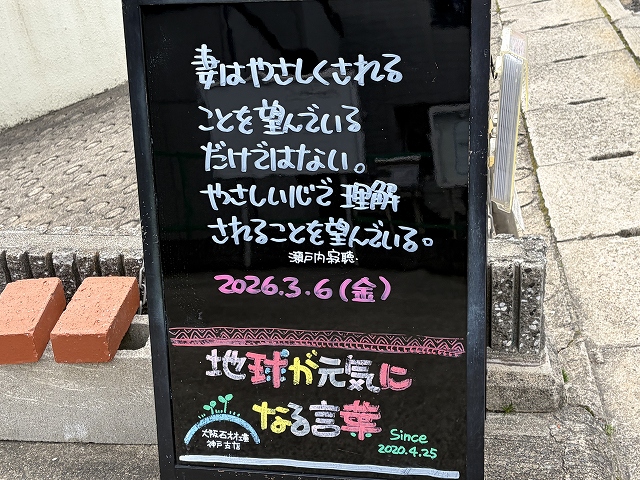 妻はやさしくされる
ことを望んでいる
だけではない。
やさしい心で理解
されることを望んでいる。
瀬戸内寂聴
2026.3.6(金)
地球が元気に
なる言葉
大阪石材工業
神戸支店
Since
2020.4.25